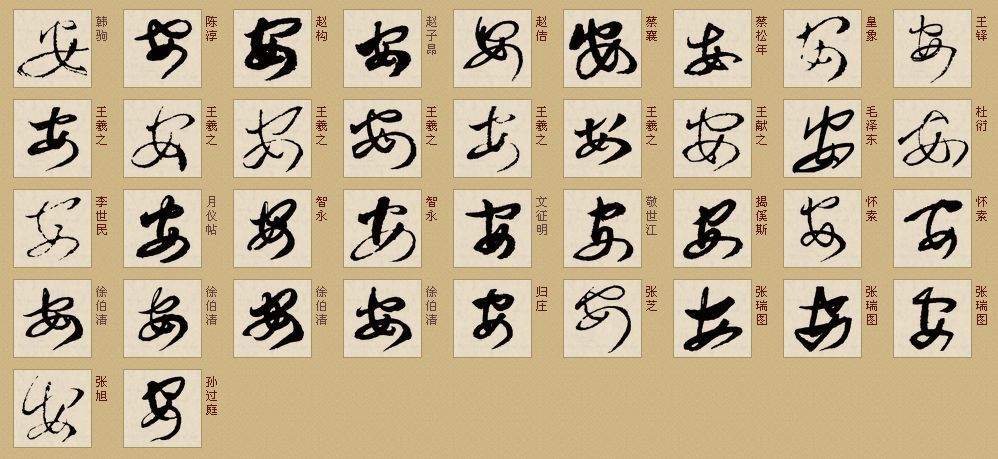 安 韩驹 安 陈淳 安 赵构 安 赵子昂 安 赵佶 安 蔡襄 安 蔡松年 安 皇象 安 王铎
安 王羲之 安 王羲之 安 王羲之 安 王羲之 安 王羲之 安 王羲之 安 王献之 安 毛泽东 安 杜衍
安 李世民 安 月仪帖 安 智永 安 智永 安 文征明 安 敬世江 安 揭傒斯 安 怀素 安 怀素
安 徐伯清 安 徐伯清 安 徐伯清 安 徐伯清 安 归庄 安 张芝 安 张瑞图 安 张瑞图 安 张瑞图
安 张旭 安 孙过庭